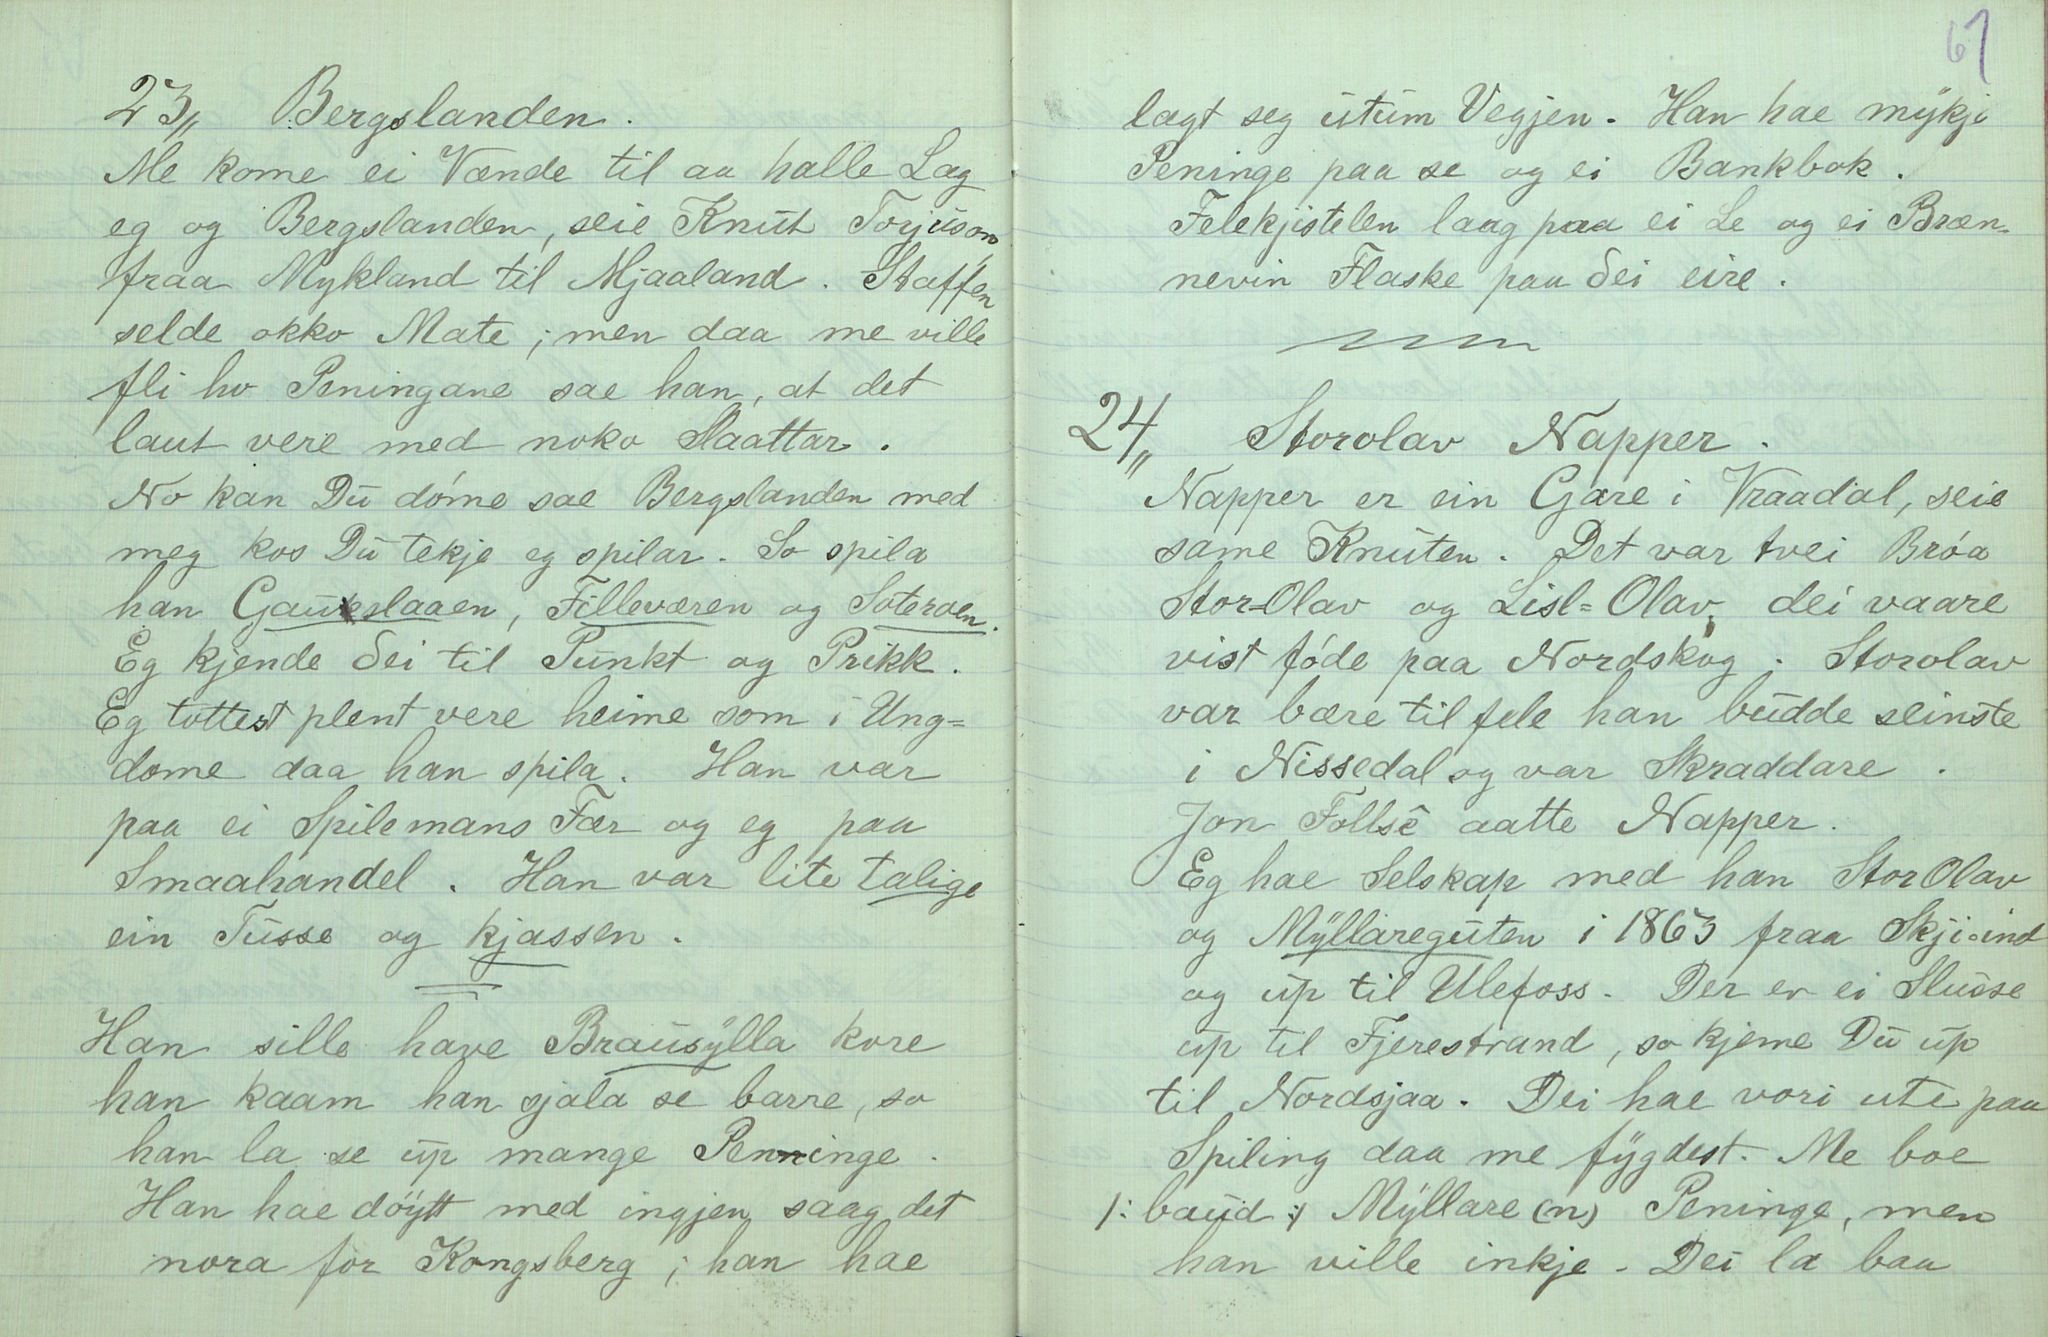 23,, Bergslanden.
Me kome ei Vænde til aa halle Lag
eg og Bergslanden, seie Knut Torjuson,
fraa Mykland til Mjaaland. Staffen
selde okko Mate; men daa me ville
fli ho Peningane sae han, at det
laut vere med noko Slaattar.
No kan Du dóme sae Bergslanden med
meg kos Du tekje eg spilar. So spila
han Gaukslaaen, Filleværen og Soteroen.
Eg kjende dei til Punkt og Prikk.
Eg tottest plent vere heime som i Ung=
dome daa han spila. Han var
paa ei Spilemans Fær og eg paa
Smaahandel. Han var lite talige
ein Tusse og kjassen.
Han sille have Brausylla kore
han kaam han sjala se barre, so
han la se up mange Penninge.
Han hae döytt med ingjen saag det
nora for Kongsberg; han hae
67
lagt seg utum Vegjen. Han hae mykje
Peninge paa se og ei Bankbok.
Felekjistelen laag paa ei Le og ei Bræn-
nevin Flaske paa dei eire.
24,, Storolav Napper.
Napper er ein Gare i Vraadal, seie
same Knuten. Det var tvei Bróa
Stor-Olav og Lisl=Olav, dei vaare
vist fóde paa Nordskog. Storolav
var bære til fele han budde seinste
i Nissedal og var Skraddare.
Jon Follsë aatte Napper.
Eg hae Selskap med han StorOlav
og Myllareguten i 1863 fraa Skji-ind
og up til Ulefoss. Der er ei Slusse
up til Fjerestrand, so kjeme Du up
til Nordsjaa. Dei hae vori ute paa
Spiling daa me fygdest. Me boe
/: baud :/ Myllare (n) Peninge, men
han ville inkje. Dei la baa